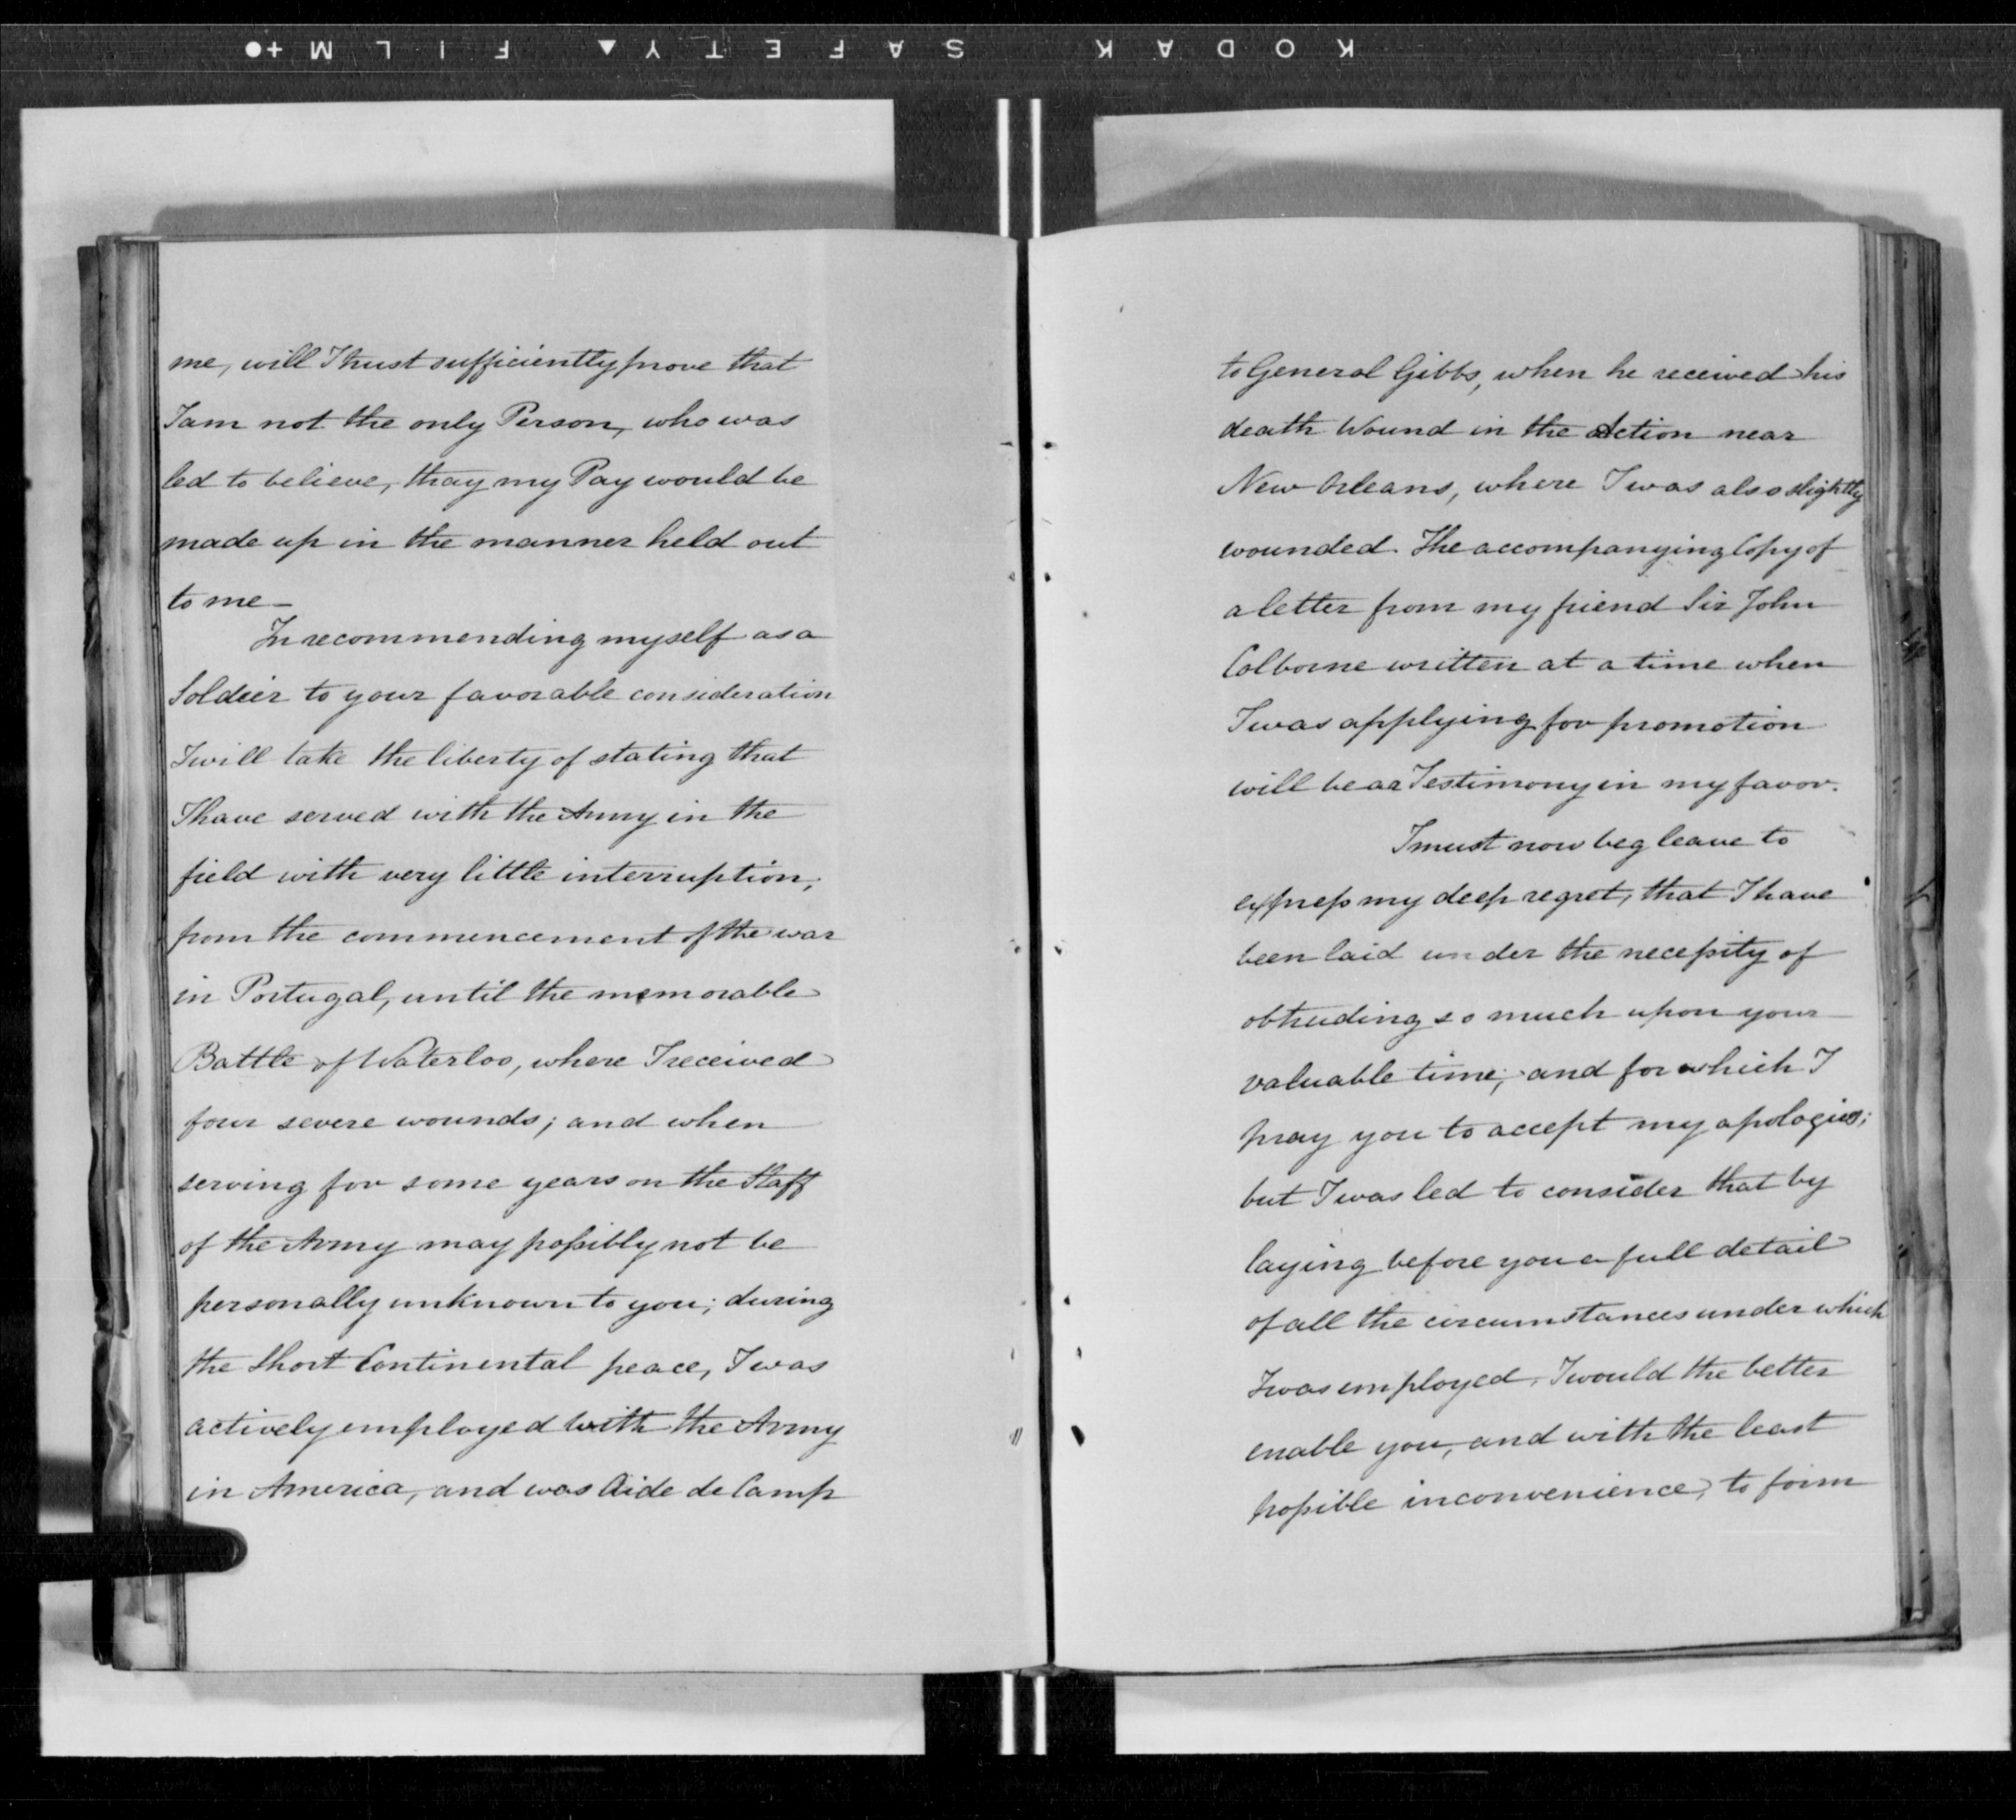 KODAK SAFETY ▲ FILM +●
me, will I trust sufficiently prove that
I am not the only Person, who was
led to believe, thay my Pay would be
made up in the manner held out
to me —
In recommending myself as a
Soldier to your favorable consideration
I will take the liberty of stating that
I have served with the Army in the
field with very little interruption,
from the commencement of the war
in Portugal, until the memorable
Battle of Waterloo, where I received
four severe wounds; and when
serving for some years on the Staff
of the Army may possibly not be
personally unknown to you; during
the Short Continental peace, I was
actively employed with the Army
in America, and was Aide de Camp
to General Gibbs, when he received his
death Wound in the Action near
New Orleans, where I was also slightly
wounded. The accompanying Copy of
a letter from my friend Sir John
Colborne written at a time when
I was applying for promotion
will bear Testimony in my favor.
I must now beg leave to
express my deep regret, that I have
been laid under the necessity of
obtruding so much upon your
valuable time; and for which I
pray you to accept my apologies;
but I was led to consider that by
laying before you a full detail
of all the circumstances under which
I was employed, I would the better
enable you, and with the least
possible inconvenience, to form